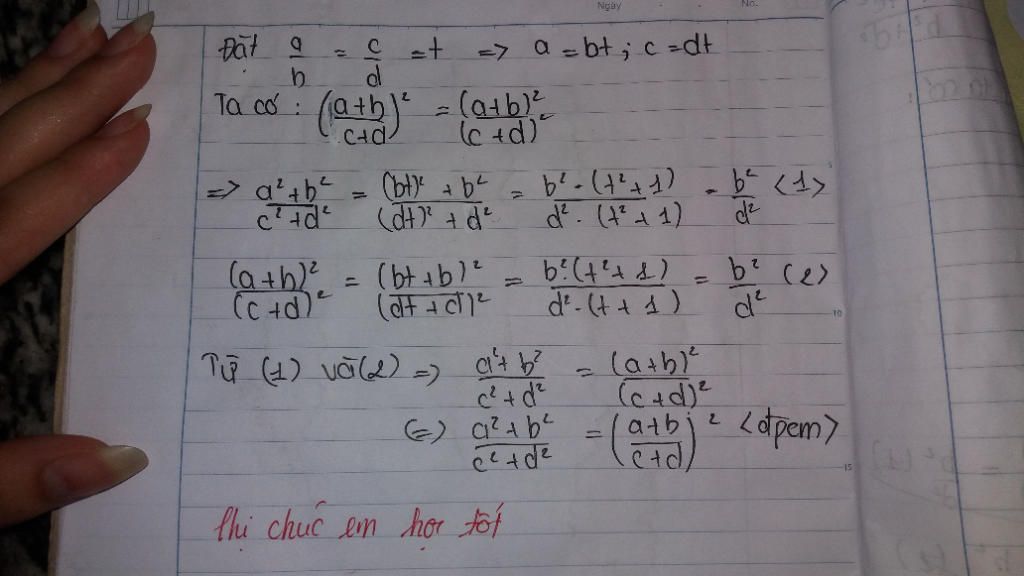 Ngày No.
Đặt a/b = c/d = t => a = bt ; c = dt
Ta có : ((a+b)/(c+d))² = (a+b)²/(c+d)²
=> (a²+b²)/(c²+d²) = ((bt)²+b²)/((dt)²+d²) = (b².(t²+1))/(d².(t²+1)) = b²/d² <1>
(a+b)²/(c+d)² = (bt+b)²/(dt+d)² = (b².(t²+1))/(d².(t+1)) = b²/d² (2)
Từ (1) và (2) => (a²+b²)/(c²+d²) = (a+b)²/(c+d)²
<=> (a²+b²)/(c²+d²) = ((a+b)/(c+d))² <đpcm>
chúc em học tốt